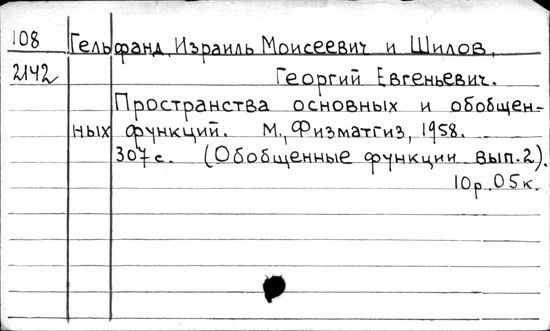 108 Гельфанд, Израиль Моисеевич и Шилов,
2142 Георгий Евгеньевич.
Пространства основных и обобщен-
ных функций. М., Физматгиз, 1958.
307 с. (Обобщенные функции вып. 2).
10р. 05к.